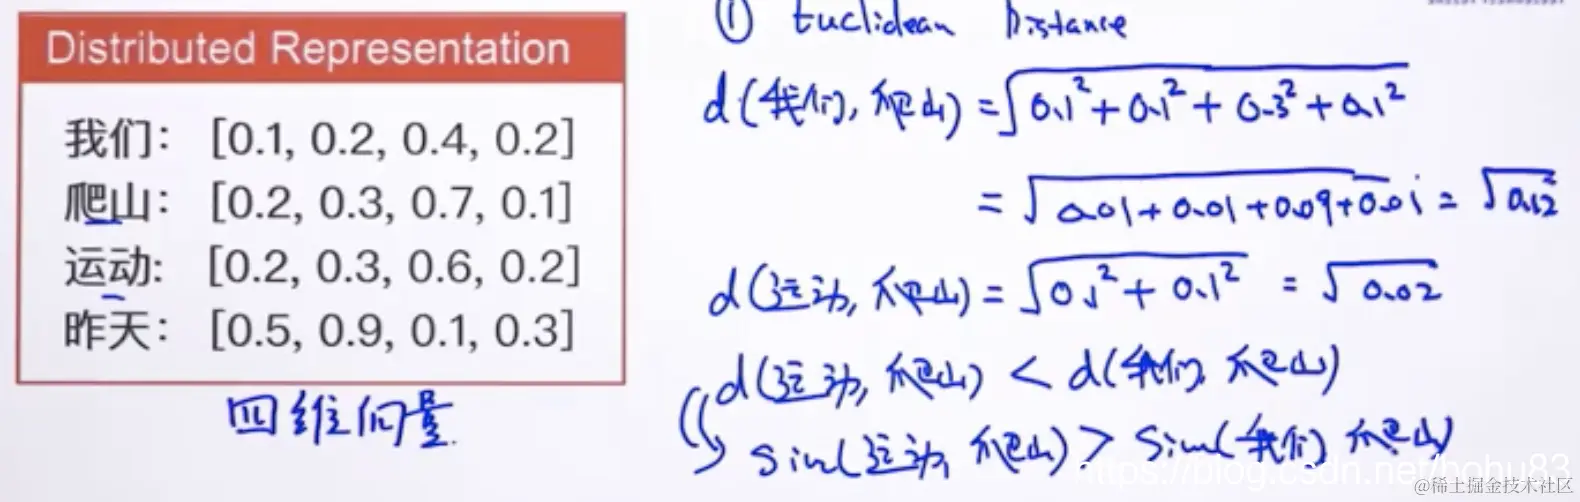 Distributed Representation
我们: [0.1, 0.2, 0.4, 0.2]
爬山: [0.2, 0.3, 0.7, 0.1]
运动: [0.2, 0.3, 0.6, 0.2]
昨天: [0.5, 0.9, 0.1, 0.3]
四维向量
① Euclidean Distance
d(我们, 爬山) = √0.1² + 0.1² + 0.3² + 0.1²
= √0.01 + 0.01 + 0.09 + 0.01 = √0.12
d(运动, 爬山) = √0.1² + 0.1² = √0.02
d(运动, 爬山) < d(我们, 爬山)
sim(运动, 爬山) > sim(我们, 爬山)
https://blog.csdn.net/hohu83
@稀土掘金技术社区